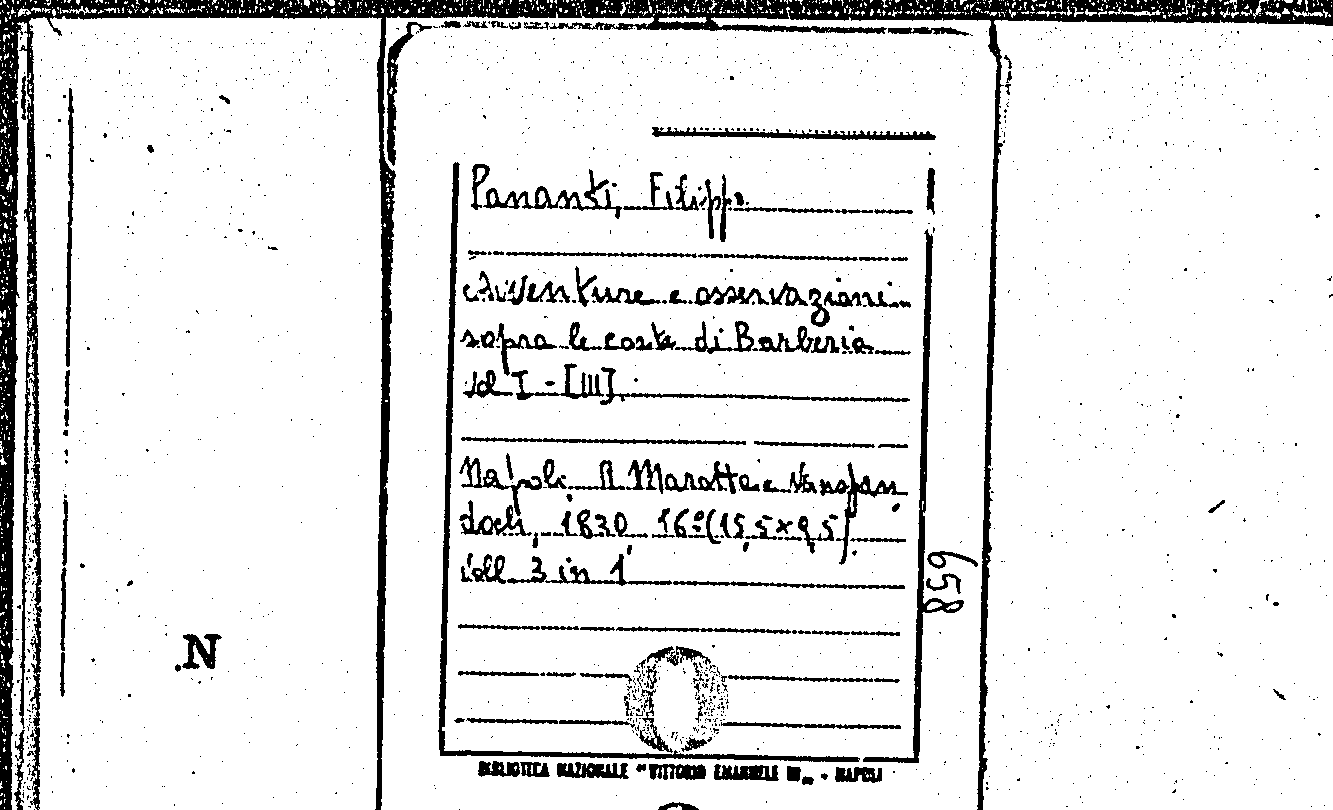 Pananti, Filippo.
Avventure e osservazioni
sopra le coste di Barberia
Vol I - [III].
Napoli, R Marotta e Vanspan
doch, 1830, 16º (15,5 x 9,5).
Voll. 3 in 1
658
.N
BIBLIOTECA NAZIONALE "VITTORIO EMANUELE III" - NAPOLI